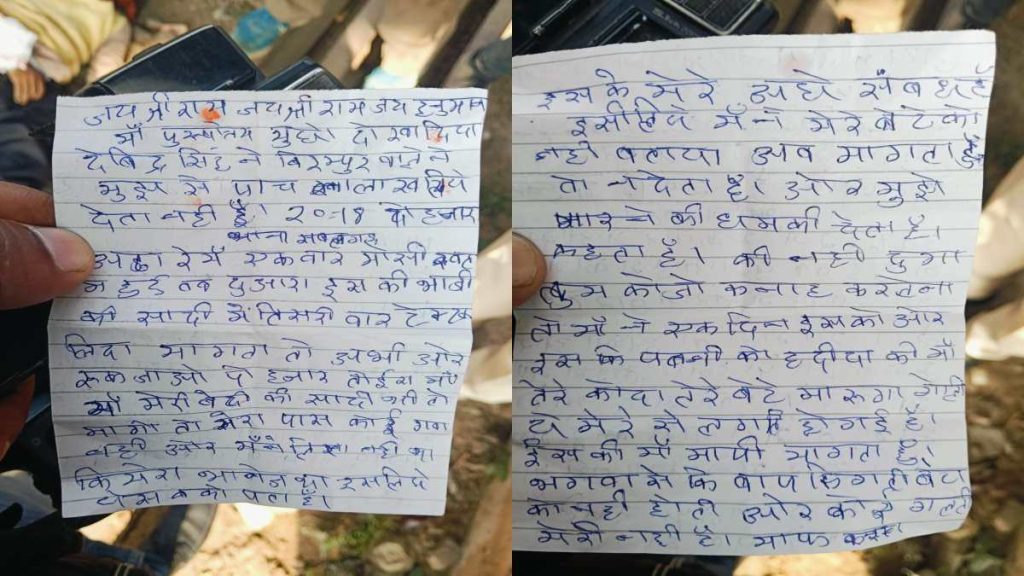 जय श्री राम जय श्री राम जय हनुमान
मॉ पुरूषोतम गुदो दो खालिया
देबिद्र सिंह ने बिरमपुर वाले ने
मुझ से पाच लाख रूपिये
देता नही हैं। 20-18 दो हजार
थाना सबलगढ़
अठारे में एक बार मोसी खतम
न हुई तब दुआरा इस की भाभी
की सादी में तिसरी बार टेक्टर
लिदा मागग तो अभी ओर
रूक जाओ दो हजार
मॉ मेरी बेटी की सादी थी तो
मागे तो मेरा पास कोई गवा
नही ओर मैंने लिखा नही का
कि मेरा भानेज था इसलिये
ये सब को पता हैं।
इस के मेरे अछे संबध हैं
इसीलिये में ने मेरे बेटे को
नही बताया अब मागता हूँ
तो न देता हैं। ओर मुझे
मारने की धमकी देता हैं।
कहता हैं। की नही दुगा
तुम को जो कनाह करलेना
तो मॉ ने एक दिन इसको ओर
इस कि पतनी को हदीया की मॉ
तेरे को दा तेरे बेटे मारूगा गोली
ये मेरे से लगती हो गई हैं।
ईस की मॉ मापी मागता हैं।
भगवा से कि बाप कि गलती बेटा
का नही होती ओर कोई गलती
मेरी नही हैं। माफ करना